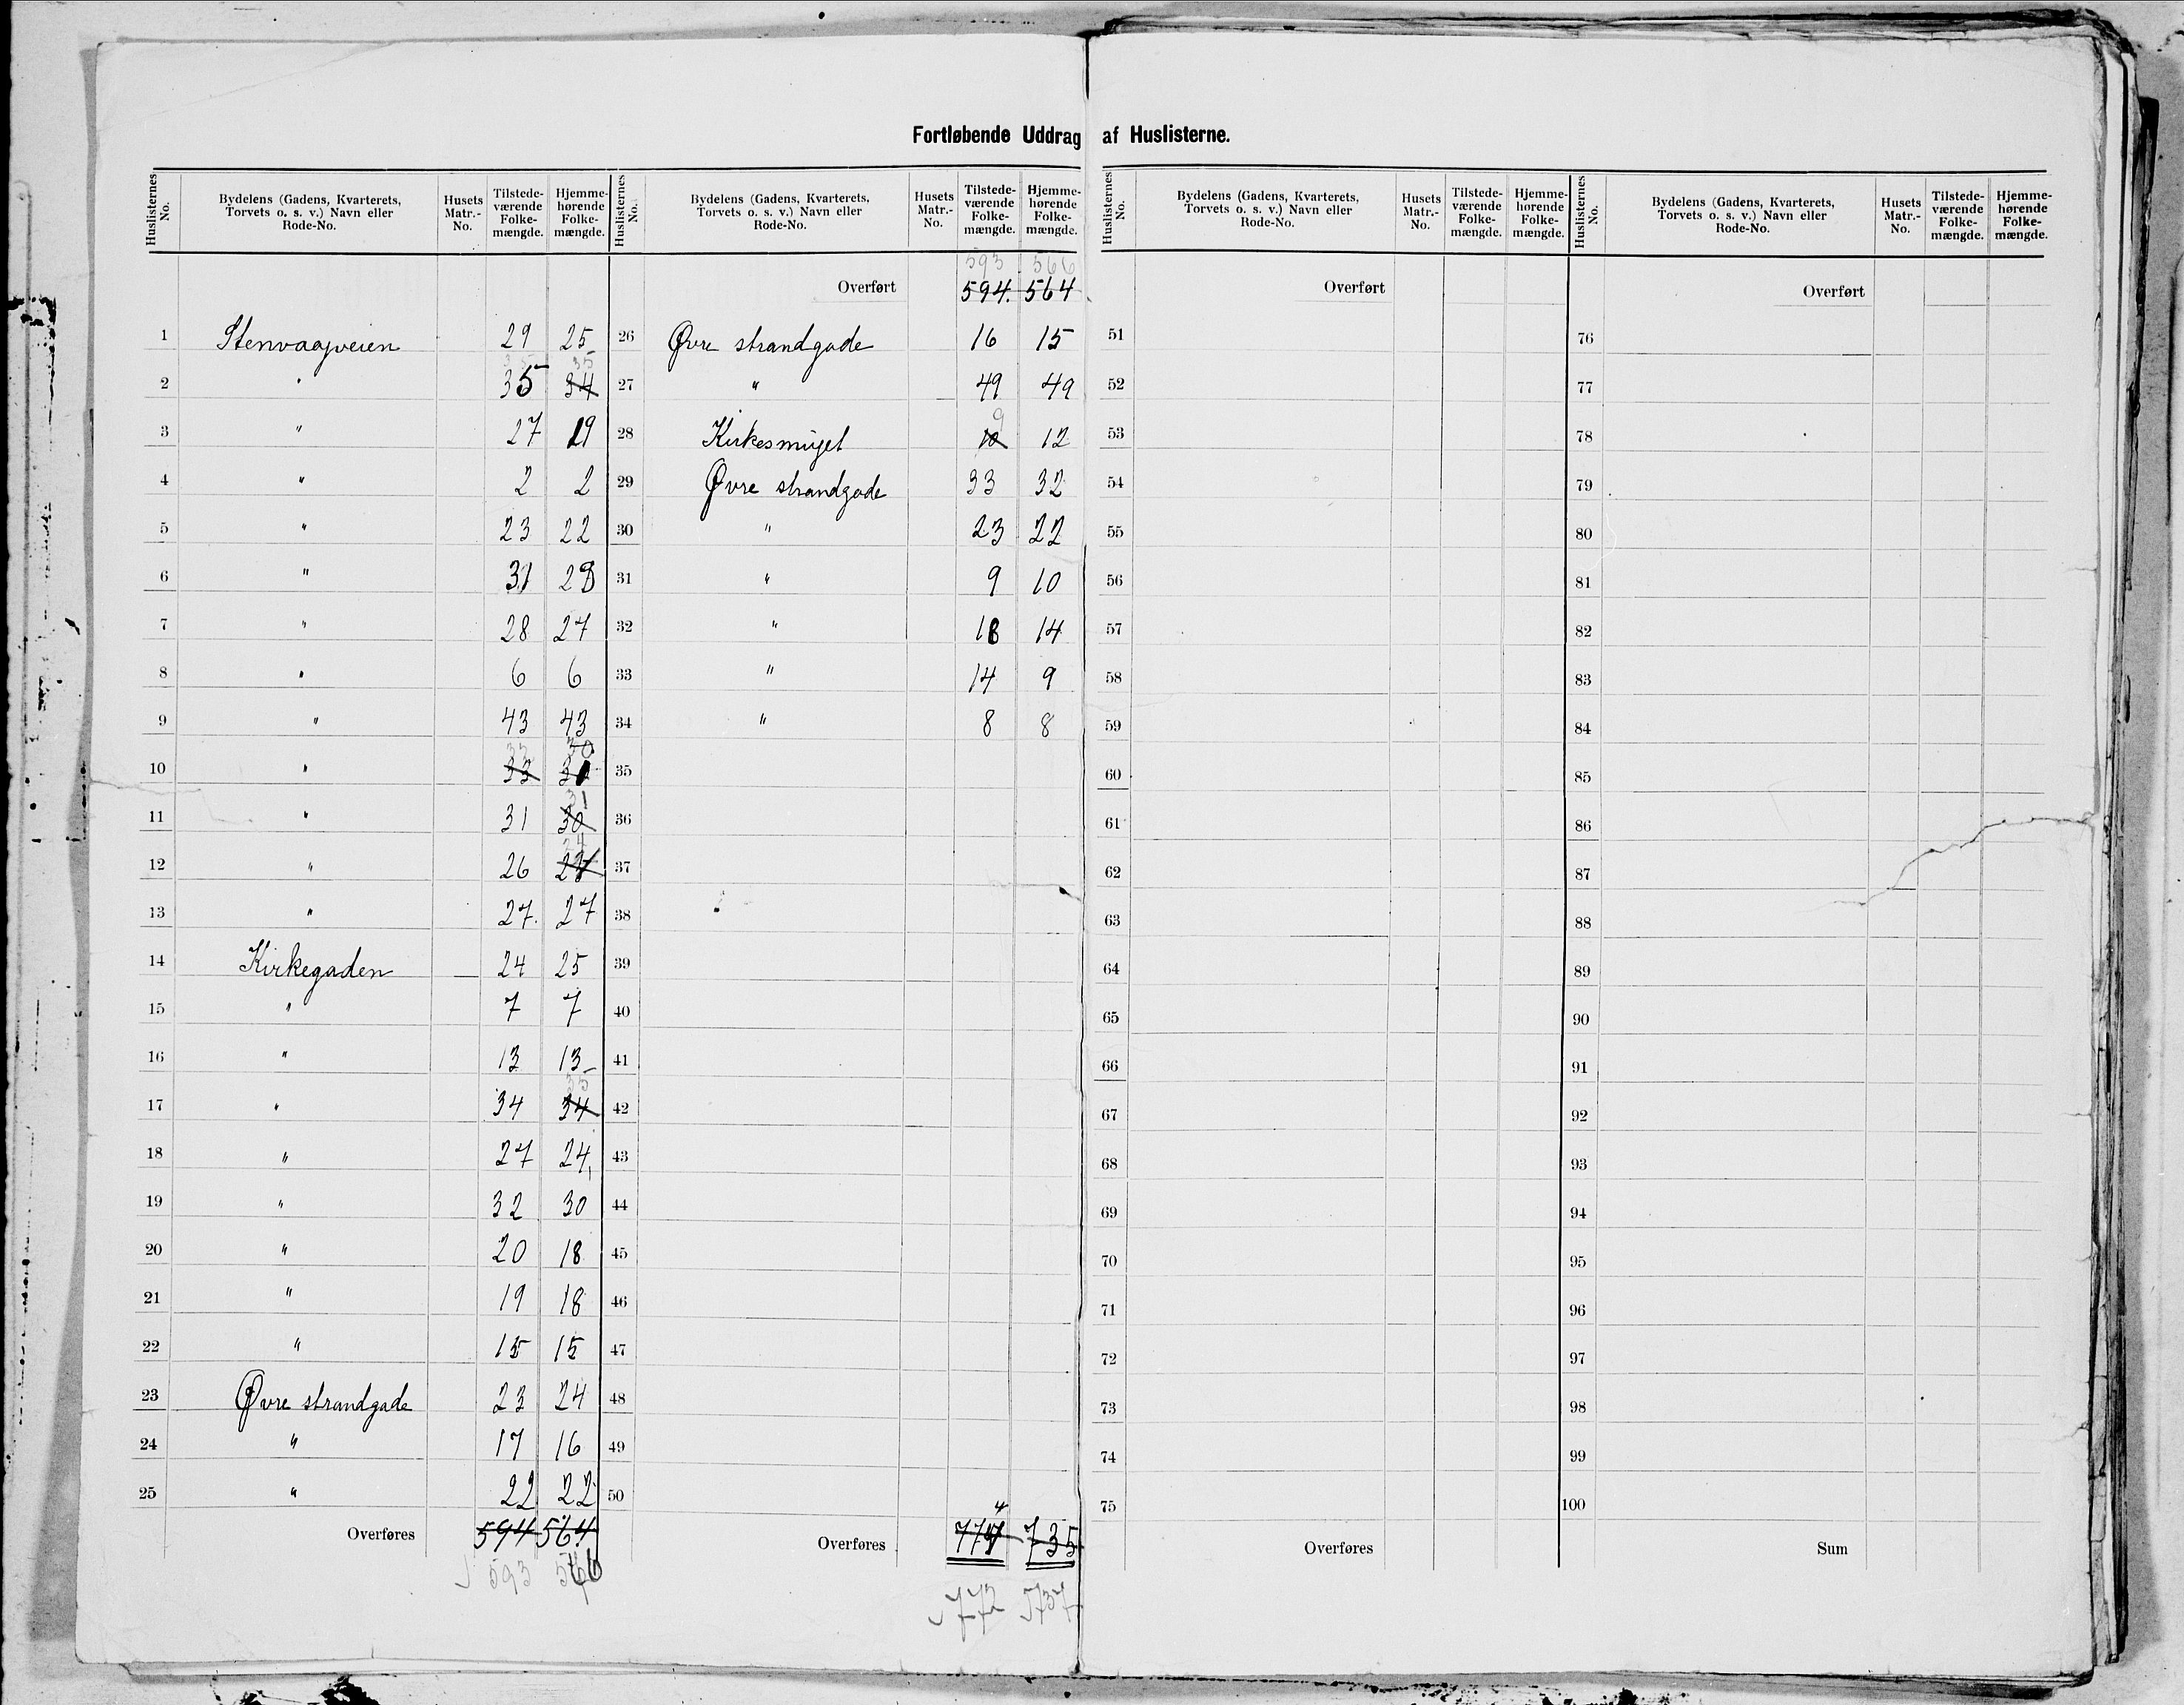 Fortløbende Uddrag af Huslisterne.
Huslisternes No. Bydelens (Gadens, Kvarterets, Torvets o. s. v.) Navn eller Rode-No. Husets Matr.-No. Tilstede-værende Folke-mængde. Hjemme-hørende Folke-mængde.
1 Stenvaagveien 29 25
2 " 35 35 34 35
3 " 27 19
4 " 2 2
5 " 23 22
6 " 31 28
7 " 28 27
8 " 6 6
9 " 43 43
10 " 33 30
11 " 31 30 31
12 " 26 24
13 " 27. 27
14 Kirkegaden 24 25
15 " 7 7
16 " 13 13
17 " 34 34 35
18 " 27 24
19 " 32 30
20 " 20 18
21 " 19 18
22 " 15 15
23 Øvre strandgade 23 24
24 " 17 16
25 " 22 22
Overføres 594 564
593 566
Huslisternes No. Bydelens (Gadens, Kvarterets, Torvets o. s. v.) Navn eller Rode-No. Husets Matr.-No. Tilstede-værende Folke-mængde. Hjemme-hørende Folke-mængde.
593 566
Overført 594. 564
26 Øvre strandgade 16 15
27 " 49 49
28 Kirkesmuget 10 9 12
29 Øvre strandgade 33 32
30 " 23 22
31 " 9 10
32 " 18 14
33 " 14 9
34 " 8 8
35
36
37
38
39
40
41
42
43
44
45
46
47
48
49
50
Overføres 774 735
772 737
Huslisternes No. Bydelens (Gadens, Kvarterets, Torvets o. s. v.) Navn eller Rode-No. Husets Matr.-No. Tilstede-værende Folke-mængde. Hjemme-hørende Folke-mængde.
Overført
51
52
53
54
55
56
57
58
59
60
61
62
63
64
65
66
67
68
69
70
71
72
73
74
75
Overføres
Huslisternes No. Bydelens (Gadens, Kvarterets, Torvets o. s. v.) Navn eller Rode-No. Husets Matr.-No. Tilstede-værende Folke-mængde. Hjemme-hørende Folke-mængde.
Overført
76
77
78
79
80
81
82
83
84
85
86
87
88
89
90
91
92
93
94
95
96
97
98
99
100
Sum